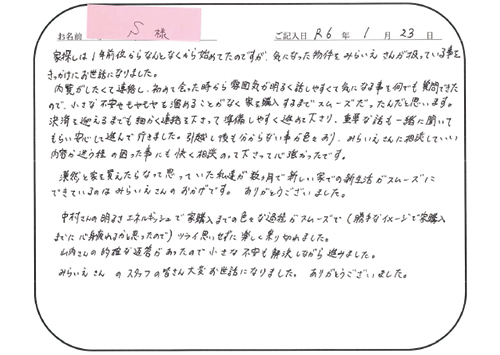 お名前 S 様 ご記入日 R6年 1月 23日
家探しは1年前位からなんとなくから始めてたのですが、気になった物件をみらいえさんが扱っている事を
きっかけにお世話になりました。
内覧がしたくて連絡し、初めて会った時から雰囲気が明るく話しやすくて気になる事を何でも質問できた
ので、小さな不安やモヤモヤを溜めることがなく家を購入するまでスムーズだったんだと思います。
決済を迎えるまでも細かく連絡を下さって準備しやすく進めて下さり、重要な話も一緒に聞いて
もらい安心して進んで行きました。引越し後も分からない事が色々あり、みらいえさんに相談していい
内容か迷う程の困った事にも快く相談のって下さって心強かったです。
漠然と家を買えたらなって思っていた私達が数ヶ月で新しい家での新生活がスムーズに
できているのはみらいえさんのおかげです。ありがとうございました。
中村さんの明るさエネルギッシュで家購入までの色々な過程がスムーズで(勝手なイメージで家購入
までに心身疲れるかと思ったので)ツライ思いせずに楽しく乗り切れました。
山内さんの的確な返答があったので小さな不安も解決しながら進みました。
みらいえさん のスタッフの皆さん大変お世話になりました。ありがとうございました。